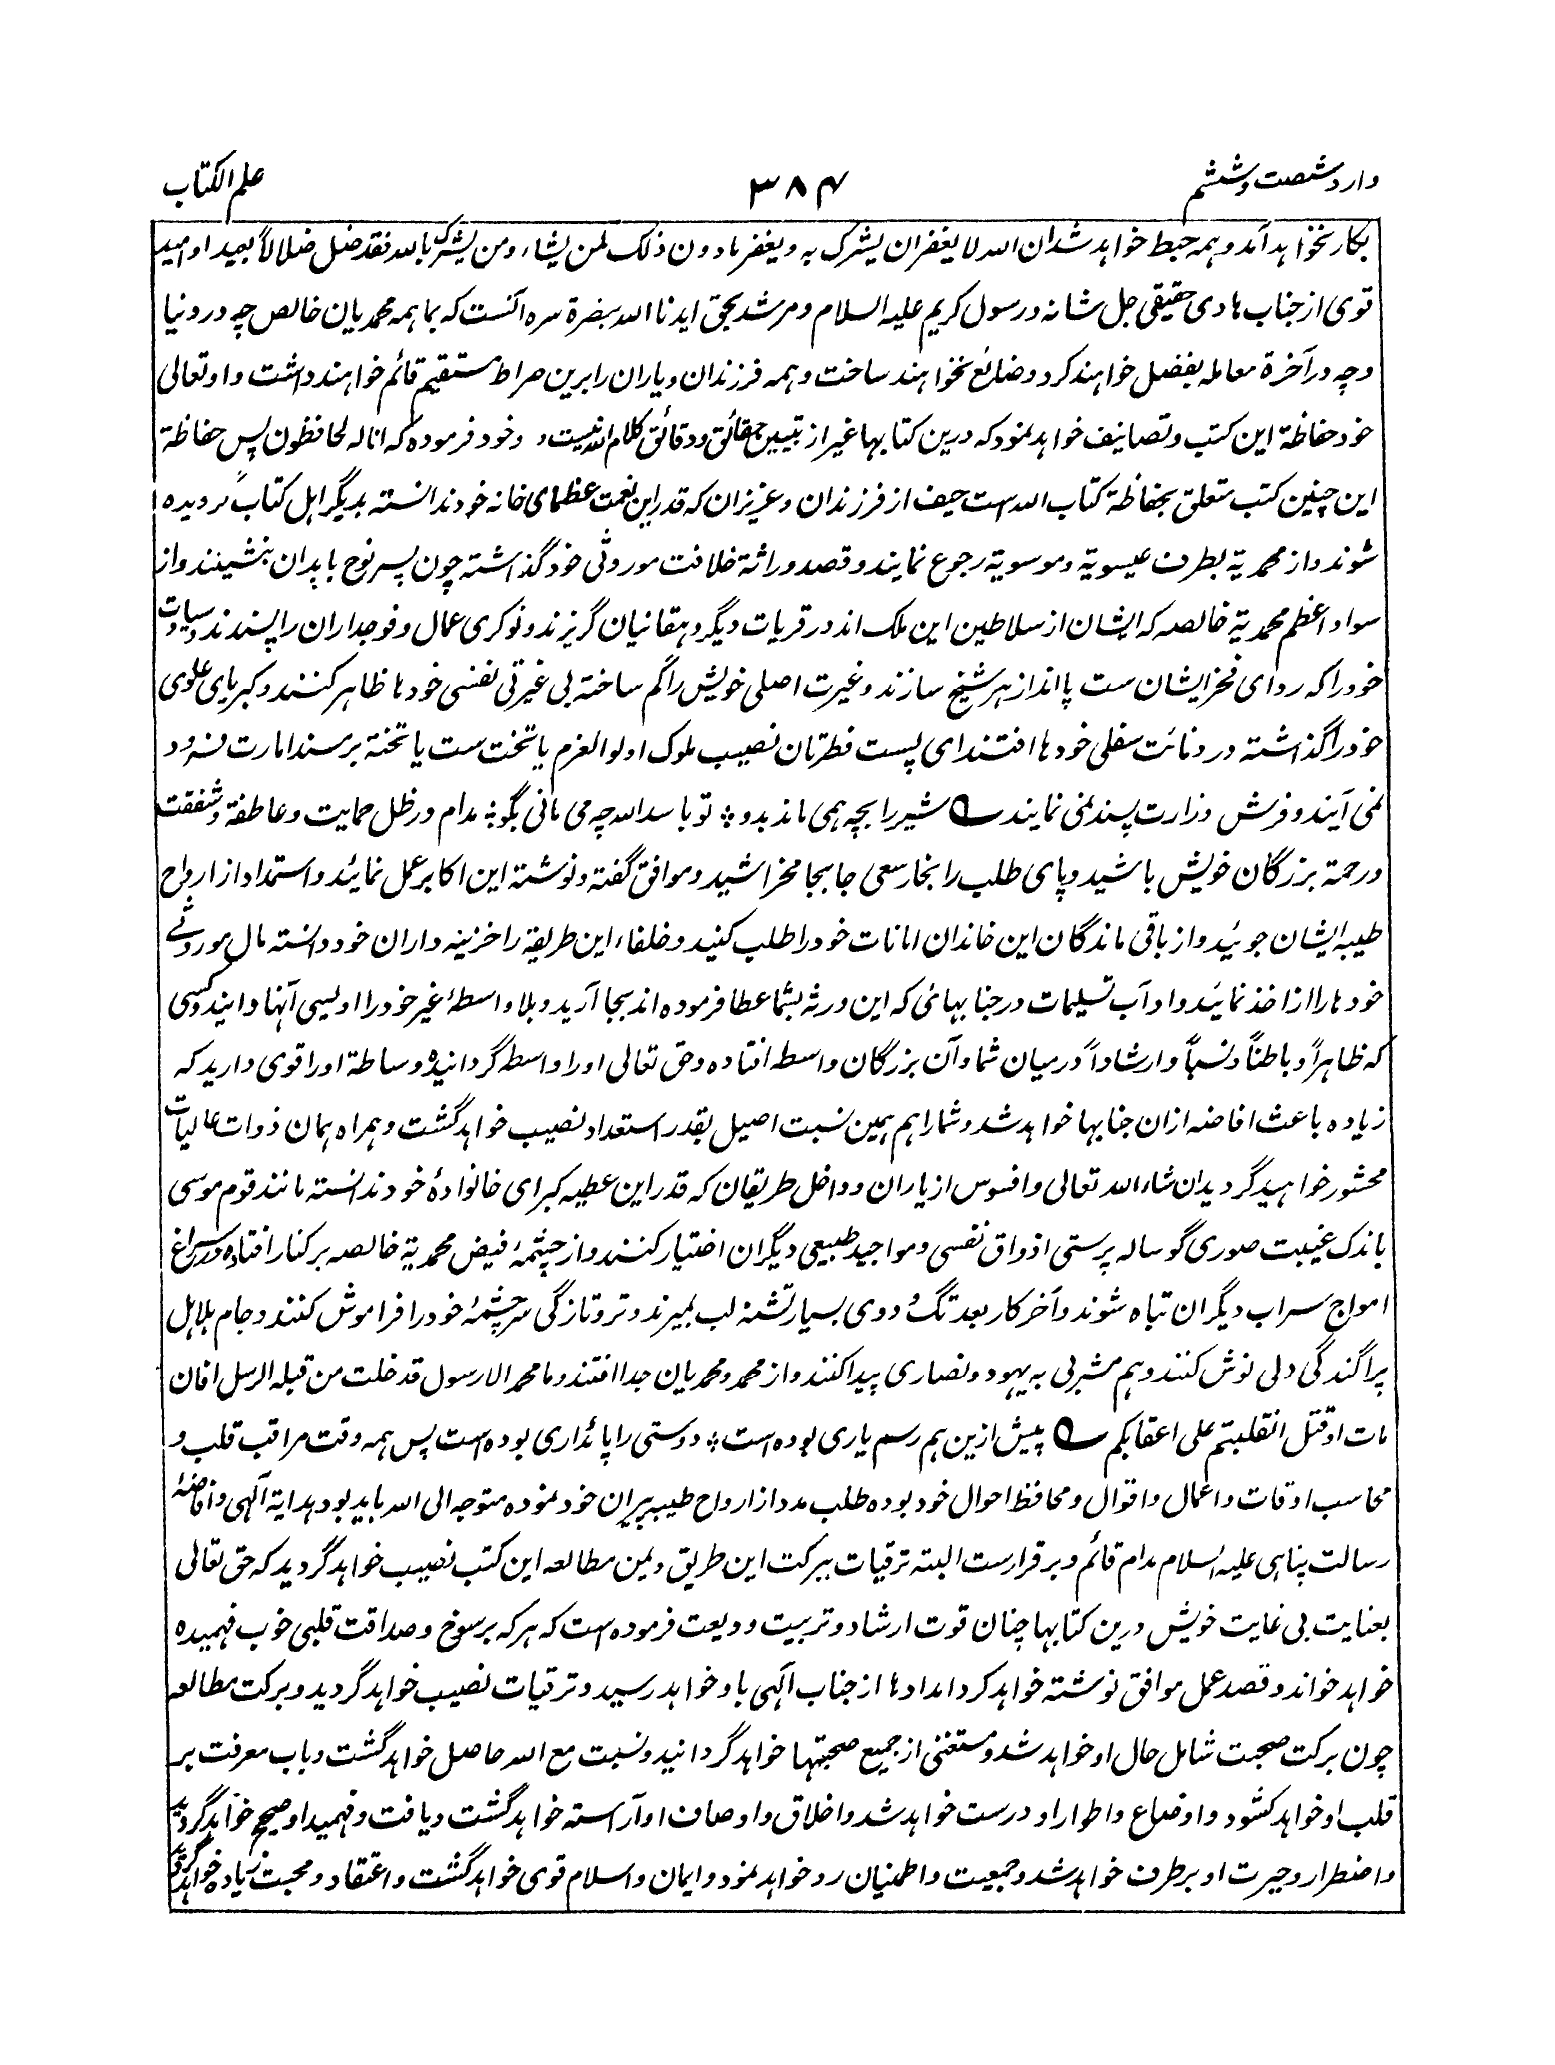 وارد شصت و ششم
۳۸۴
علم الکتاب
بکار نخواهد آمد و همه حبط خواهد شد ان الله لا یغفر ان یشرک به و یغفر ما دون ذلک لمن یشاء و من یشرک بالله فقد ضل ضلالاً بعید او امید
قوی از جناب هادی حقیقی جل شانه و رسول کریم علیه السلام و مرشد بحق ایدنا الله بنصرة سره آنست که بما همه محمدیان خالص چه در دنیا
و چه در آخرة معامله بفضل خواهند کرد و ضائع نخواهند ساخت و همه فرزندان و یاران را برین صراط مستقیم قائم خواهند داشت و او تعالی
خود حفاظة این کتب و تصانیف خواهد نمود که درین کتابها غیر از تبیین حقائق و دقائق کلام الله نیست و خود فرموده که انا له لحافظون پس حفاظة
این چنین کتب متعلق بحفاظة کتاب الله ست حیف از فرزندان و عزیزان که قدر این نعمت عظمای خانه خود ندانسته بدیگر اهل کتاب گرویده
شوند و از محمدیة بطرف عیسویة و موسویة رجوع نمایند و قصد وراثة خلافت موروثی خود گذاشته چون پسر نوح با بدان بنشینند و از
سواد اعظم محمدیة خالصه که ایشان از سلاطین این ملک اند در قریات دیگر دهقانیان گریزند و نوکری عمال و فوجداران را پسندند و سیادت
خود را که ردای فخر ایشان ست پا انداز هر شیخ سازند و غیرت اصلی خویش را گم ساخته بی غیرتی نفسی خودها ظاهر کنند و کبریای علوی
خود را گذاشته در دنائت سفلی خودها افتند ای پست فطرتان نصیب ملوک اولو العزم یا تخت ست یا تخته بر مسند امارت فرود
نمی آیند و فرش وزارت پسند نمی نمایند ؎ شیر را بچه همی ماند بدو ؛ تو با سد الله چه می مانی بگو ؛ مدام در ظل حمایت و عاطفة و شفقت
و رحمة بزرگان خویش باشید و پای طلب را بخار سعی جا بجا مخراشید و موافق گفته و نوشتهٔ این اکابر عمل نمائید و استمداد از ارواح
طیبه ایشان جوئید و از باقی ماندگان این خاندان امانات خود را طلب کنید و خلفاء این طریقه را خزینه داران خود دانسته مال موروثے
خودها را ازا اخذ نمائید و آداب تسلیمات در جنابهائی که این ورثه بشما عطا فرموده اند بجا آرید و بلا واسطهٔ غیر خود را اویسی آنها دانید و کسی
که ظاهراً و باطناً و نسباً و ارشاداً درمیان شما و آن بزرگان واسطه افتاده و حق تعالی او را واسطه گردانیده وساطة او را قوی دارید که
زیاده باعث افاضه ازان جنابها خواهد شد و شما را هم همین نسبت اصیل بقدر استعداد نصیب خواهد گشت و همراه همان ذوات عالیات
محشور خواهید گردید ان شاء الله تعالی و افسوس از یاران و داخل طریقان که قدر این عطیه کبرای خانوادهٔ خود ندانسته مانند قوم موسی
باندک غیبت صوری گوساله پرستی اذواق نفسی و مواجید طبیعی دیگران اختیار کنند و از چشمهٔ فیض محمدیة خالصه بر کنار افتاده در سراغ
امواج سراب دیگران تباه شوند و آخر کار بعد تگ و دوی بسیار تشنه لب بمیرند و تر و تازگی سرچشمهٔ خود را فراموش کنند و جام هلاهل
پراگندگی دلی نوش کنند و هم مشربی به یهود و نصاری پیدا کنند و از محمد و محمدیان جدا افتند و ما محمد الا رسول قد خلت من قبله الرسل افان
مات او قتل انقلبتم علی اعقابکم ؎ پیش ازین هم رسم یاری بوده است ؛ دوستی را پائداری بوده است پس همه وقت مراقب قلب و
محاسب اوقات و اعمال و اقوال و محافظ احوال خود بوده طلب مدد از ارواح طیبه پیران خود نموده متوجه الی الله باید بود هدایة آلهی و افاضهٔ
رسالت پناهی علیه السلام مدام قائم و برقرارست البته ترقیات ببرکت این طریق و یمن مطالعه این کتب نصیب خواهد گردید که حق تعالی
بعنایت بی غایت خویش درین کتابها چنان قوت ارشاد و تربیت ودیعت فرموده است که هر که برسوخ و صداقت قلبی خوب فهمیده
خواهد خواند و قصد عمل موافق نوشته خواهد کرد امدادها از جناب آلهی باو خواهد رسید و ترقیات نصیب خواهد گردید و برکت مطالعه
چون برکت صحبت شامل حال او خواهد شد و مستغنی از جمیع صحبتها خواهد گردانید و نسبت مع الله حاصل خواهد گشت و باب معرفت بر
قلب او خواهد کشود و اوضاع و اطوار او درست خواهد شد و اخلاق و اوصاف او آراسته خواهد گشت و یافت و فهمید او صحیح خواهد گردید
و اضطرار و حیرت او برطرف خواهد شد و جمعیت و اطمینان رو خواهد نمود و ایمان و اسلام قوی خواهد گشت و اعتقاد و محبت زیاده خواهد گردید